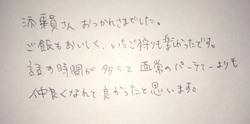 酒類さん おつかれさまでした。
ご飯もおいしく、いちご狩りも楽しかったです。
話の時間が多くて 通常のパーティーよりも
仲良くなれて良かったと思います。